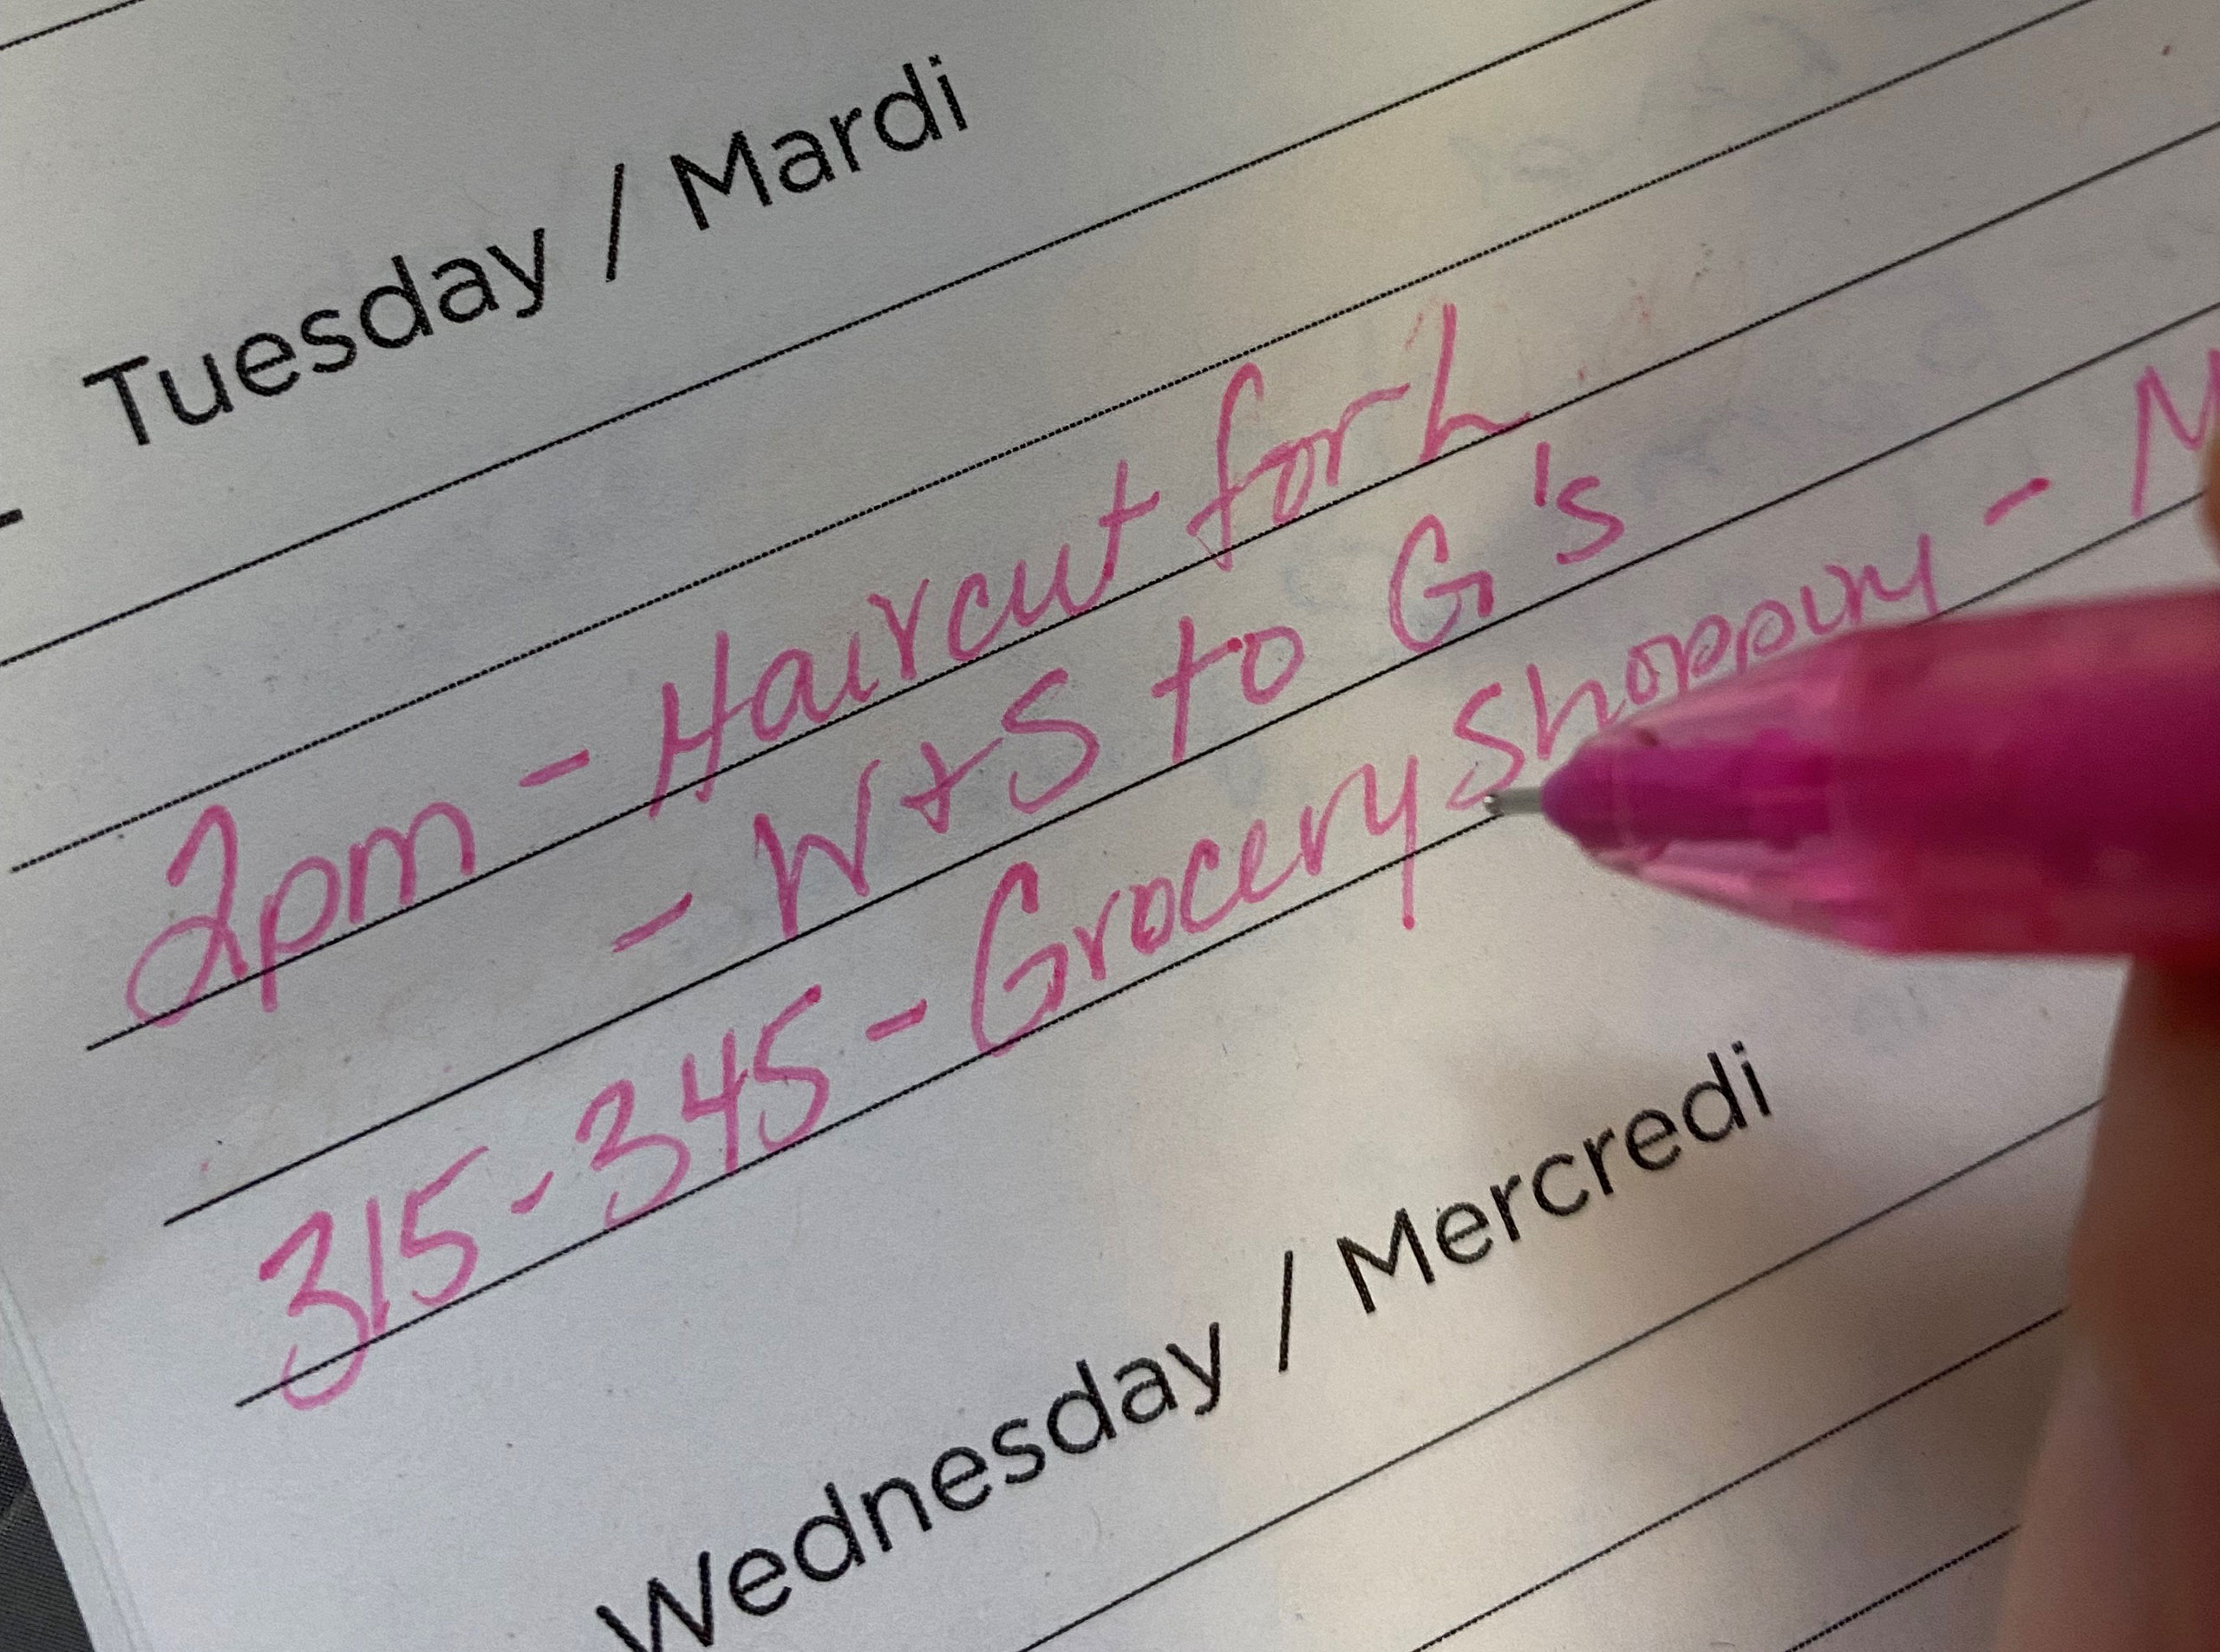 Tuesday / Mardi
2pm - Haircut for L
- W + S to G's
315-345 - Grocery Shopping - M
Wednesday / Mercredi